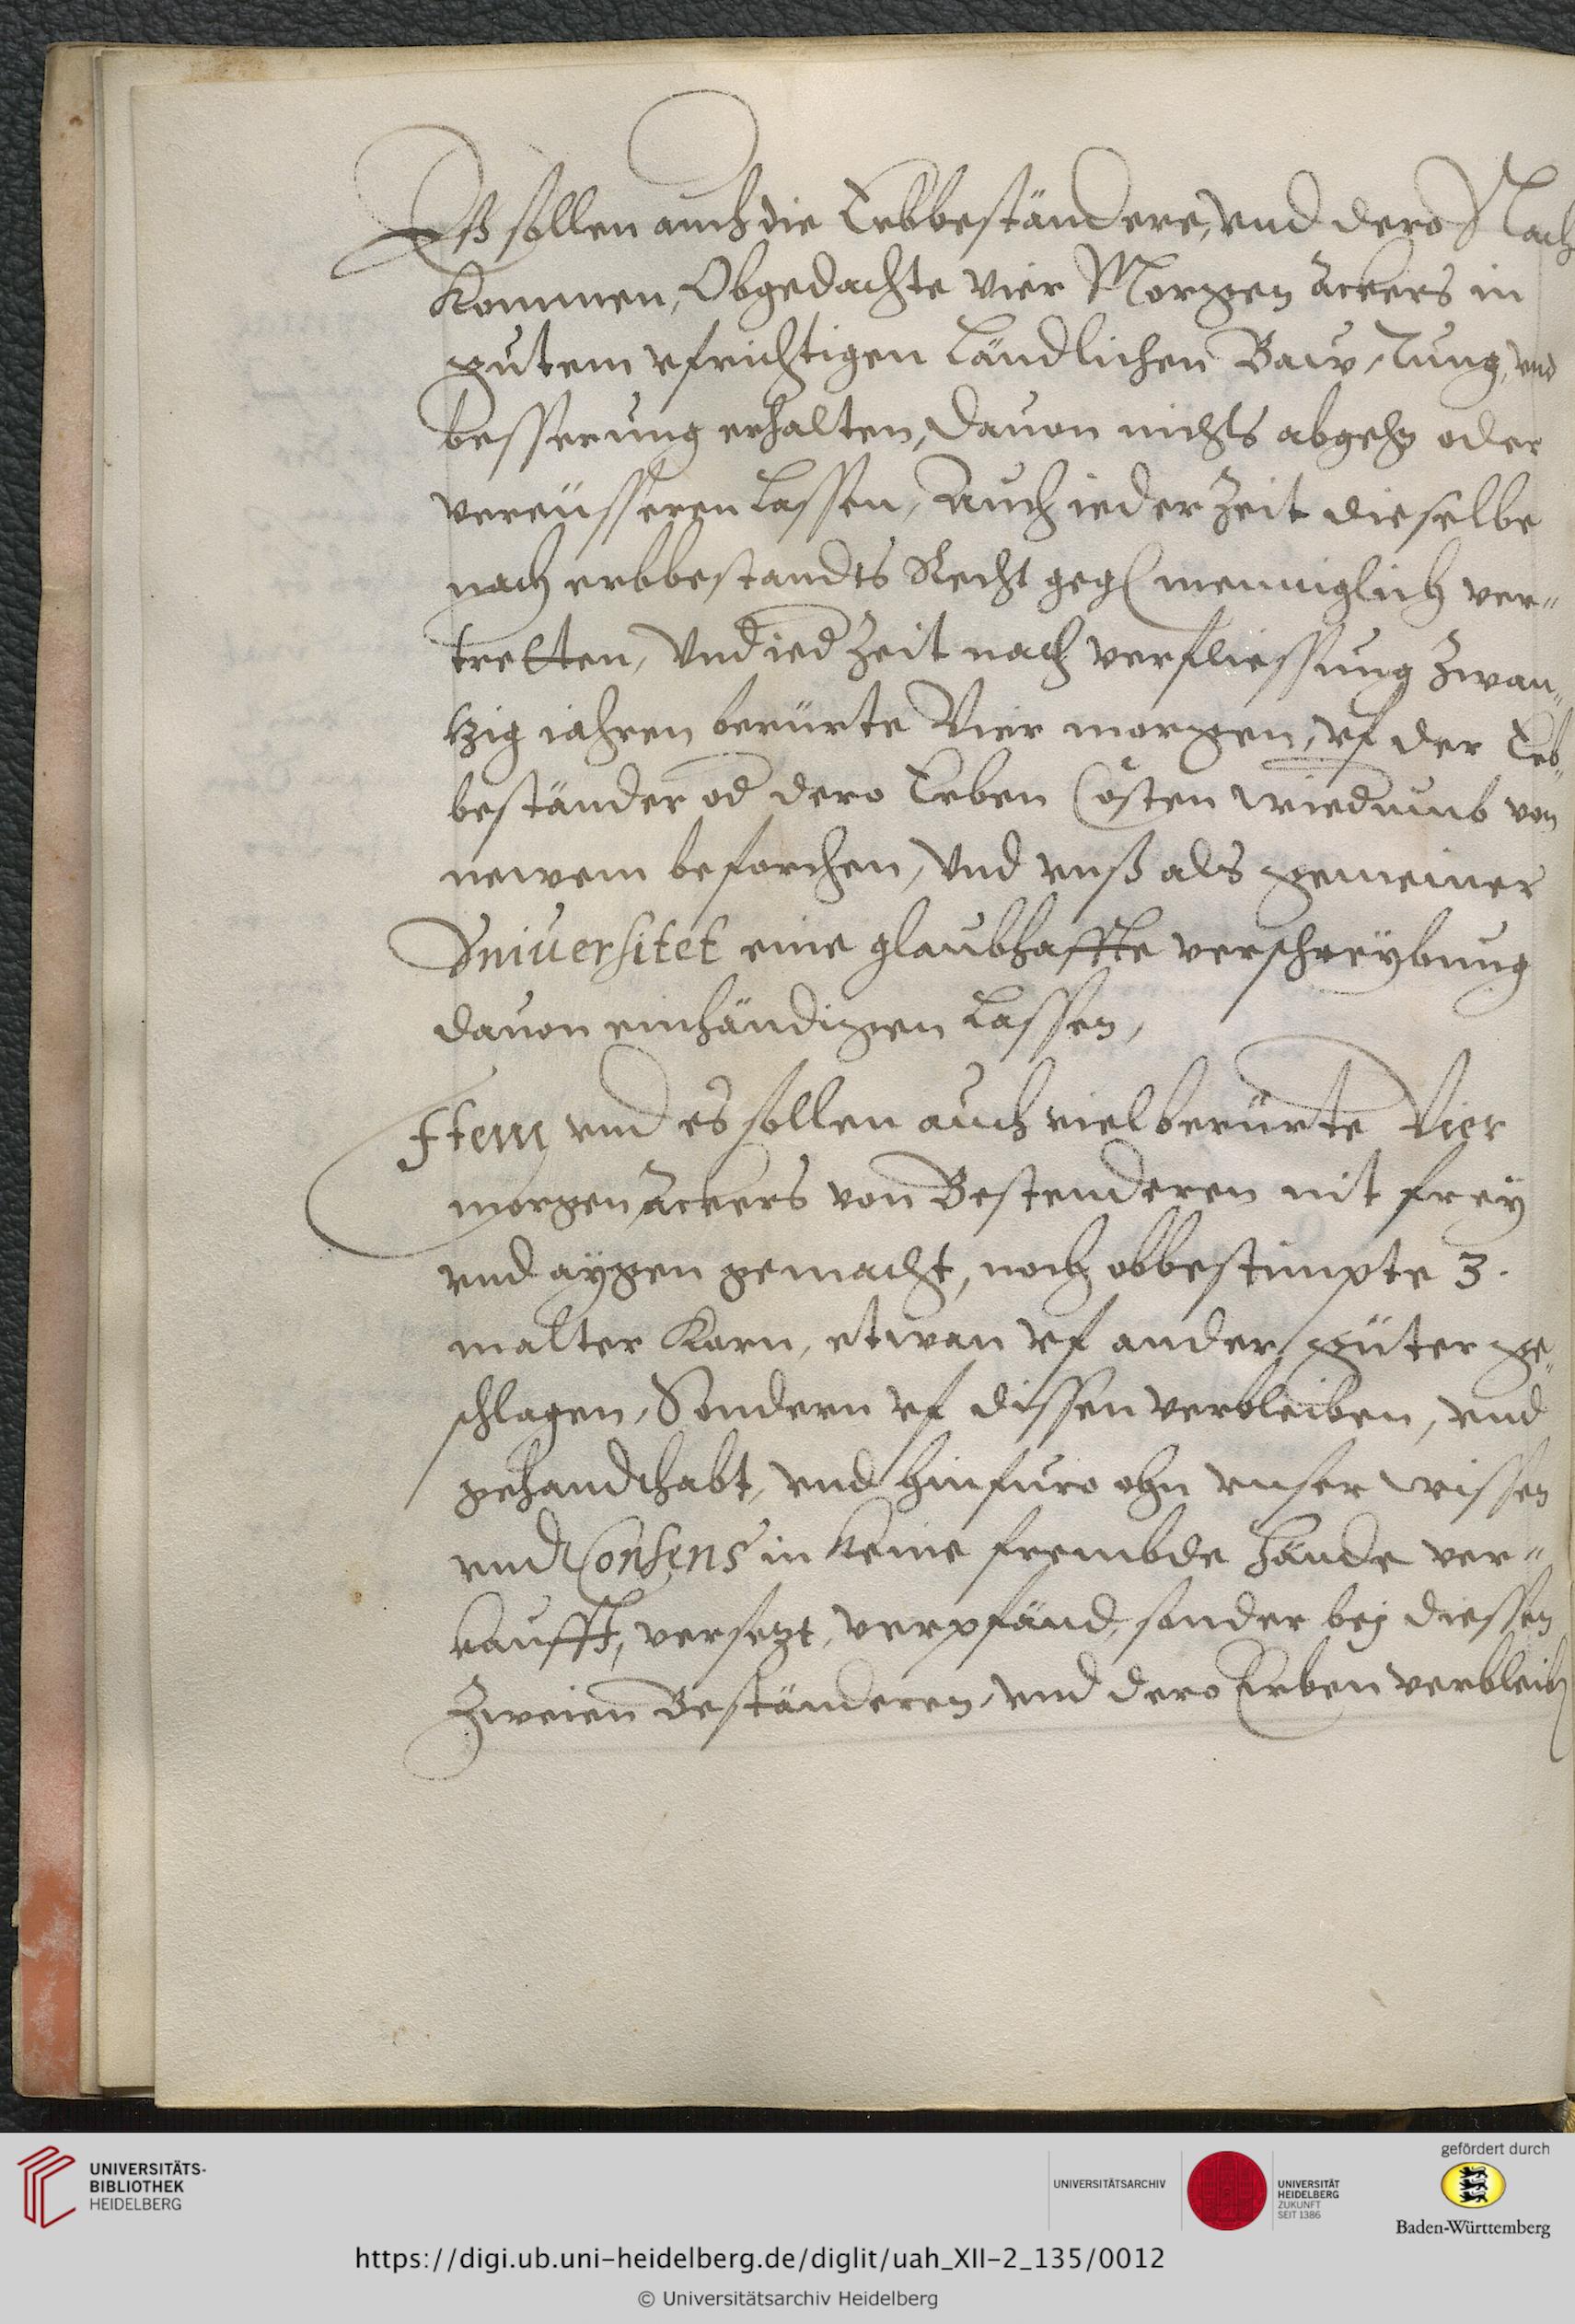 Eß sollen auch die Erbbeständere, vnd dero Nach
Kommen, Obgedachte vier Morgen äckers in
gutem vfrichtigen Ländlichen Baw, tung, vnd
besserung erhalten, dauon nichts abgehn oder
vereüsseren lassen, Auch ieder Zeit dieselbe
nach erbbestandts Recht gegen menniglich ver"
tretten, Vnd ied Zeit nach verfliessung Zwan"
tzig iahren berürte Vier morgen, vf der Erb"
beständer od dero Erben Cösten wiedumb von
newem beforchen, Vnd vnß als gemeiner
Vniuersitet eine glaubhaffte verschreybung
dauon einhändigen lassen,
Item vnd es sollen auch vielberürte Vier
morgen äckers von Bestenderen nit frey
vnd aygen gemacht, noch obbestimpte 3.
malter Korn, etwan vf ander güter ge"
schlagen, Sondern vf dissen verbleiben, vnd
gehandthabt, vnd hinfuro ohn vnser wissen
vnd Consens in keine frembde hände ver"
kaufft, versezt, verpfänd, sonder bej diessen
Zweien Beständeren, vnd dero Erben verbleib
UNIVERSITÄTS-
BIBLIOTHEK
HEIDELBERG
UNIVERSITÄTSARCHIV
UNIVERSITÄT
HEIDELBERG
ZUKUNFT
SEIT 1386
gefördert durch
Baden-Württemberg
https://digi.ub.uni-heidelberg.de/diglit/uah_XII-2_135/0012
© Universitätsarchiv Heidelberg